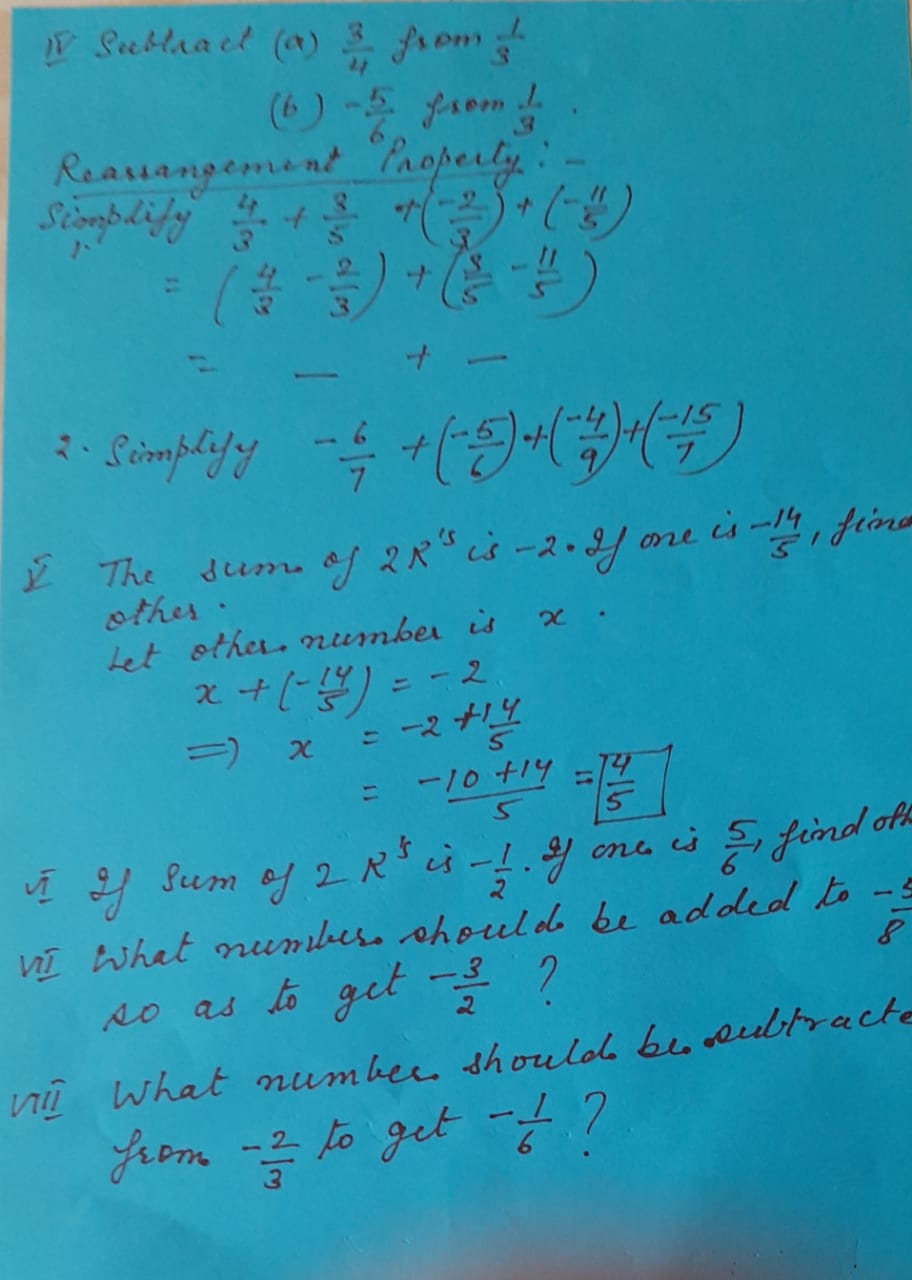 IV Subtract (a) 3/4 from 1/3
(b) -5/6 from 1/3 .
Rearrangement Property : -
Simplify 4/3 + 3/5 + (-2/3) + (-11/5)
1.
= (4/3 - 2/3) + (3/5 - 11/5)
= _ + _
2. Simplify -6/7 + (-5/6) + (-4/9) + (-15/7)
V The sum of 2R's is -2. If one is -14/5, find
other .
Let other number is x .
x + (-14/5) = -2
=> x = -2 + 14/5
= (-10 + 14)/5 = 4/5
VI If Sum of 2 R's is -1/2. If one is 5/6, find oth
VII What number should be added to -5/8
so as to get -3/2 ?
VIII What number should be subtracte
from -2/3 to get -1/6 ?